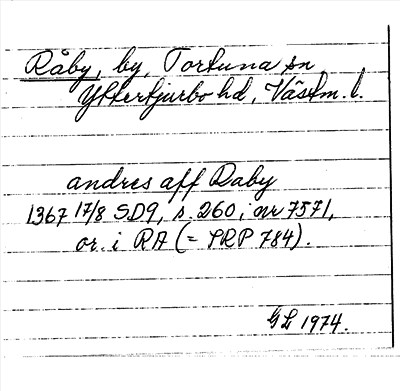 Råby, by, Tortuna sn
Yttertjurbo hd, Västm. l.
andres aff Raby
1367 17/8 SD9, s. 260, nr 7571,
or. i RA (= PRP 784).
GL 1974.